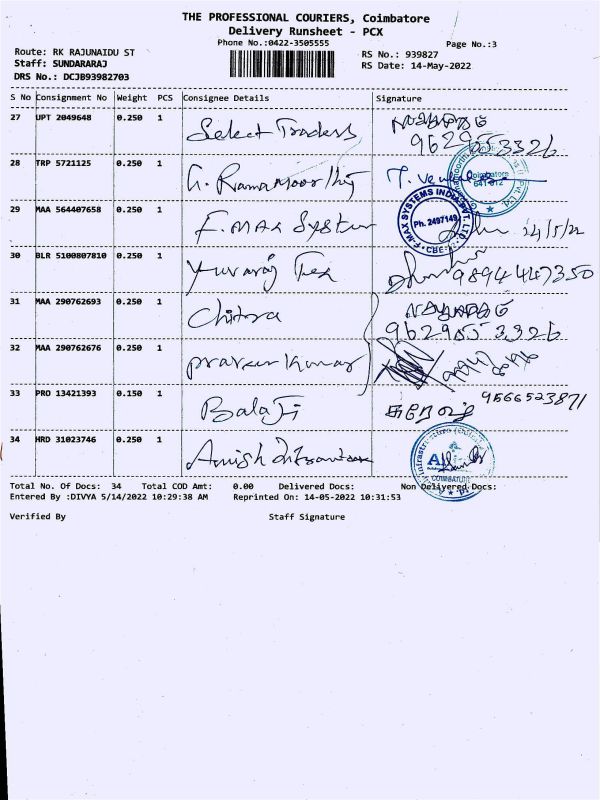 THE PROFESSIONAL COURIERS, Coimbatore
Delivery Runsheet - PCX
Phone No.:0422-3505555
Page No.:3
Route: RK RAJUNAIDU ST
RS No.: 939827
Staff: SUNDARARAJ
RS Date: 14-May-2022
DRS No.: DCJB93982703
S No Consignment No Weight PCS Consignee Details Signature
27 UPT 2049648 0.250 1 Select Traders
9629553326
28 TRP 5721125 0.250 1 G. Ramamoorthy
Coimbatore
641 012
29 MAA 564407658 0.250 1 F. MAX System 14/5/22
F-MAX SYSTEMS INDIA PVT. LTD.
Ph. 2497149
CBE
30 BLR 5100807810 0.250 1 Yuvaraj Tex 9894447350
31 MAA 290762693 0.250 1 Chitra
9629553326
32 MAA 290762676 0.250 1 Praveen Kumar
33 PRO 13421393 0.150 1 Balaji 9566523871
34 HRD 31023746 0.250 1 Amish
COIMBATORE
Total No. Of Docs: 34 Total COD Amt: 0.00 Delivered Docs: Non Delivered Docs:
Entered By :DIVYA 5/14/2022 10:29:38 AM Reprinted On: 14-05-2022 10:31:53
Verified By Staff Signature